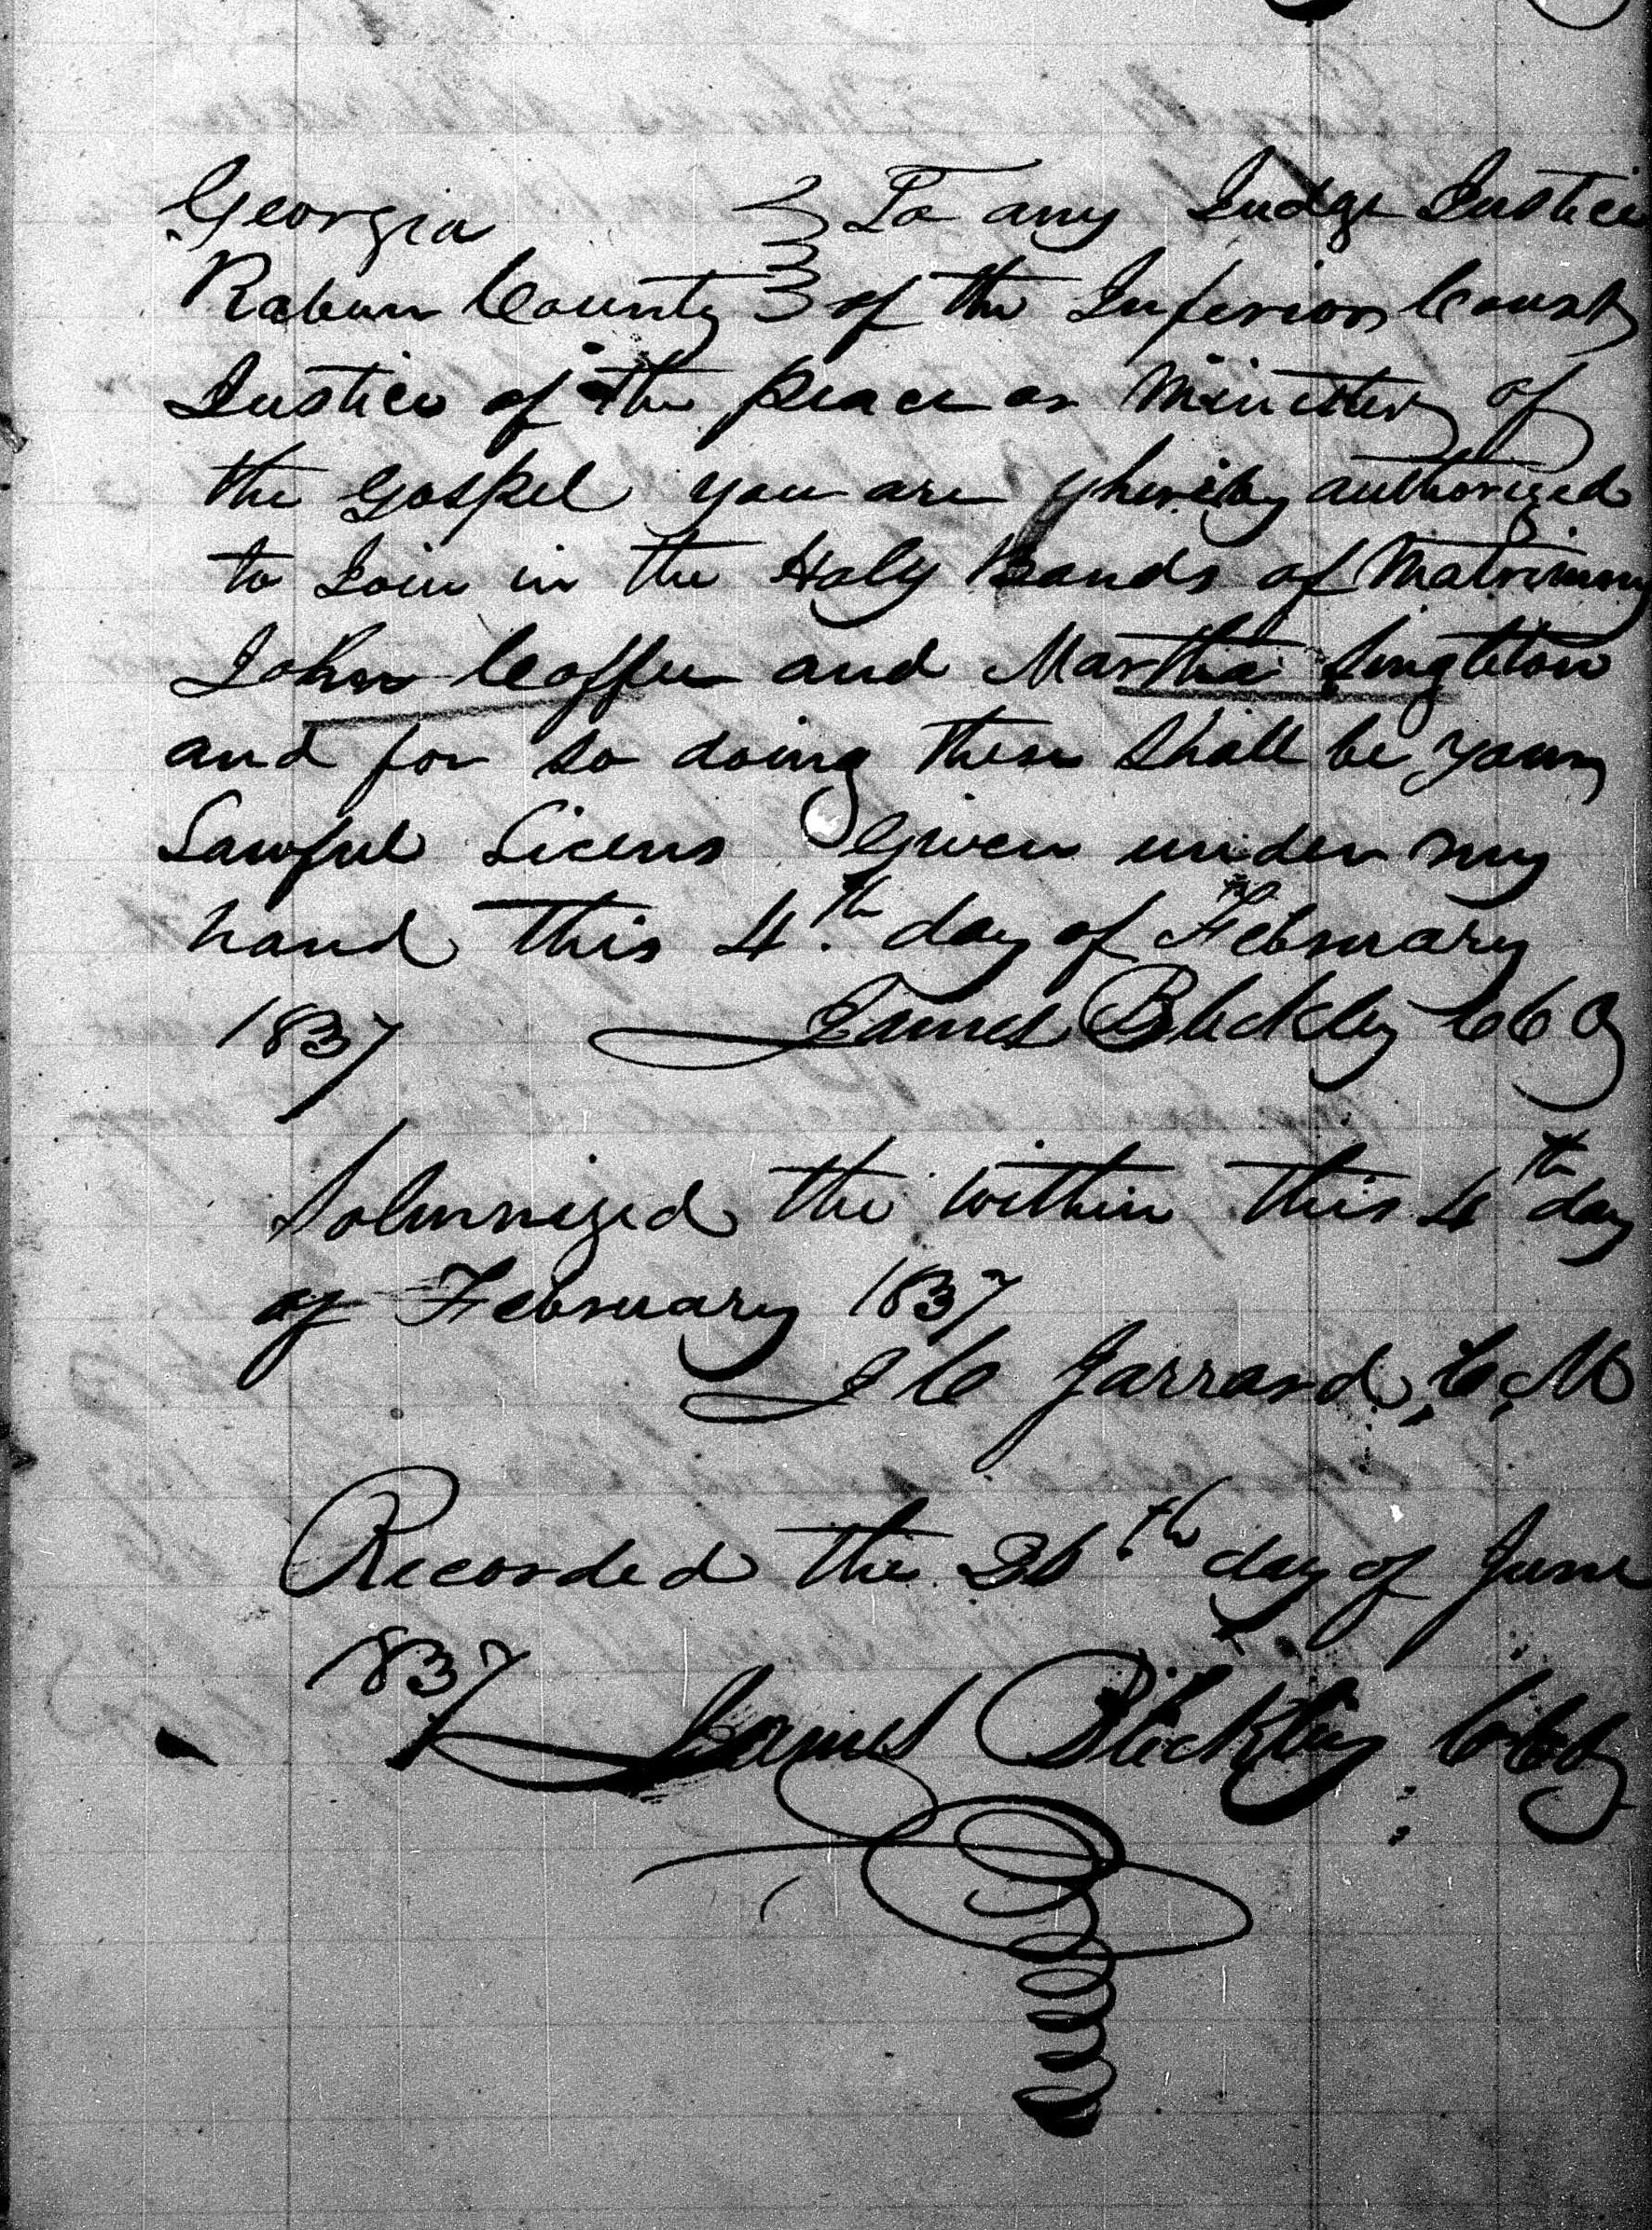 Georgia To any Judge Justice
Rabun County of the Inferior Court
Justice of the peace or Minister of
the Gospel you are hereby authorized
to Join in the Holy Bands of Matrimony
John Coffee and Martha Singleton
and for so doing these shall be your
Lawful Licens Given under my
hand this 4th day of February
1837 James Bleckley C C O
Solemnized the within this 4th day
of February 1837
J C Jarrard, C, M
Recorded the 26th day of June
1837 James Bleckley